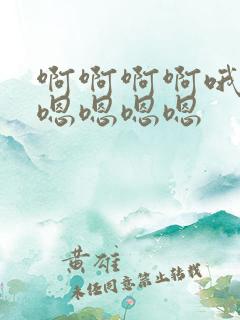 啊啊啊啊哦
嗯嗯嗯嗯
黄雄
未经同意禁止转载